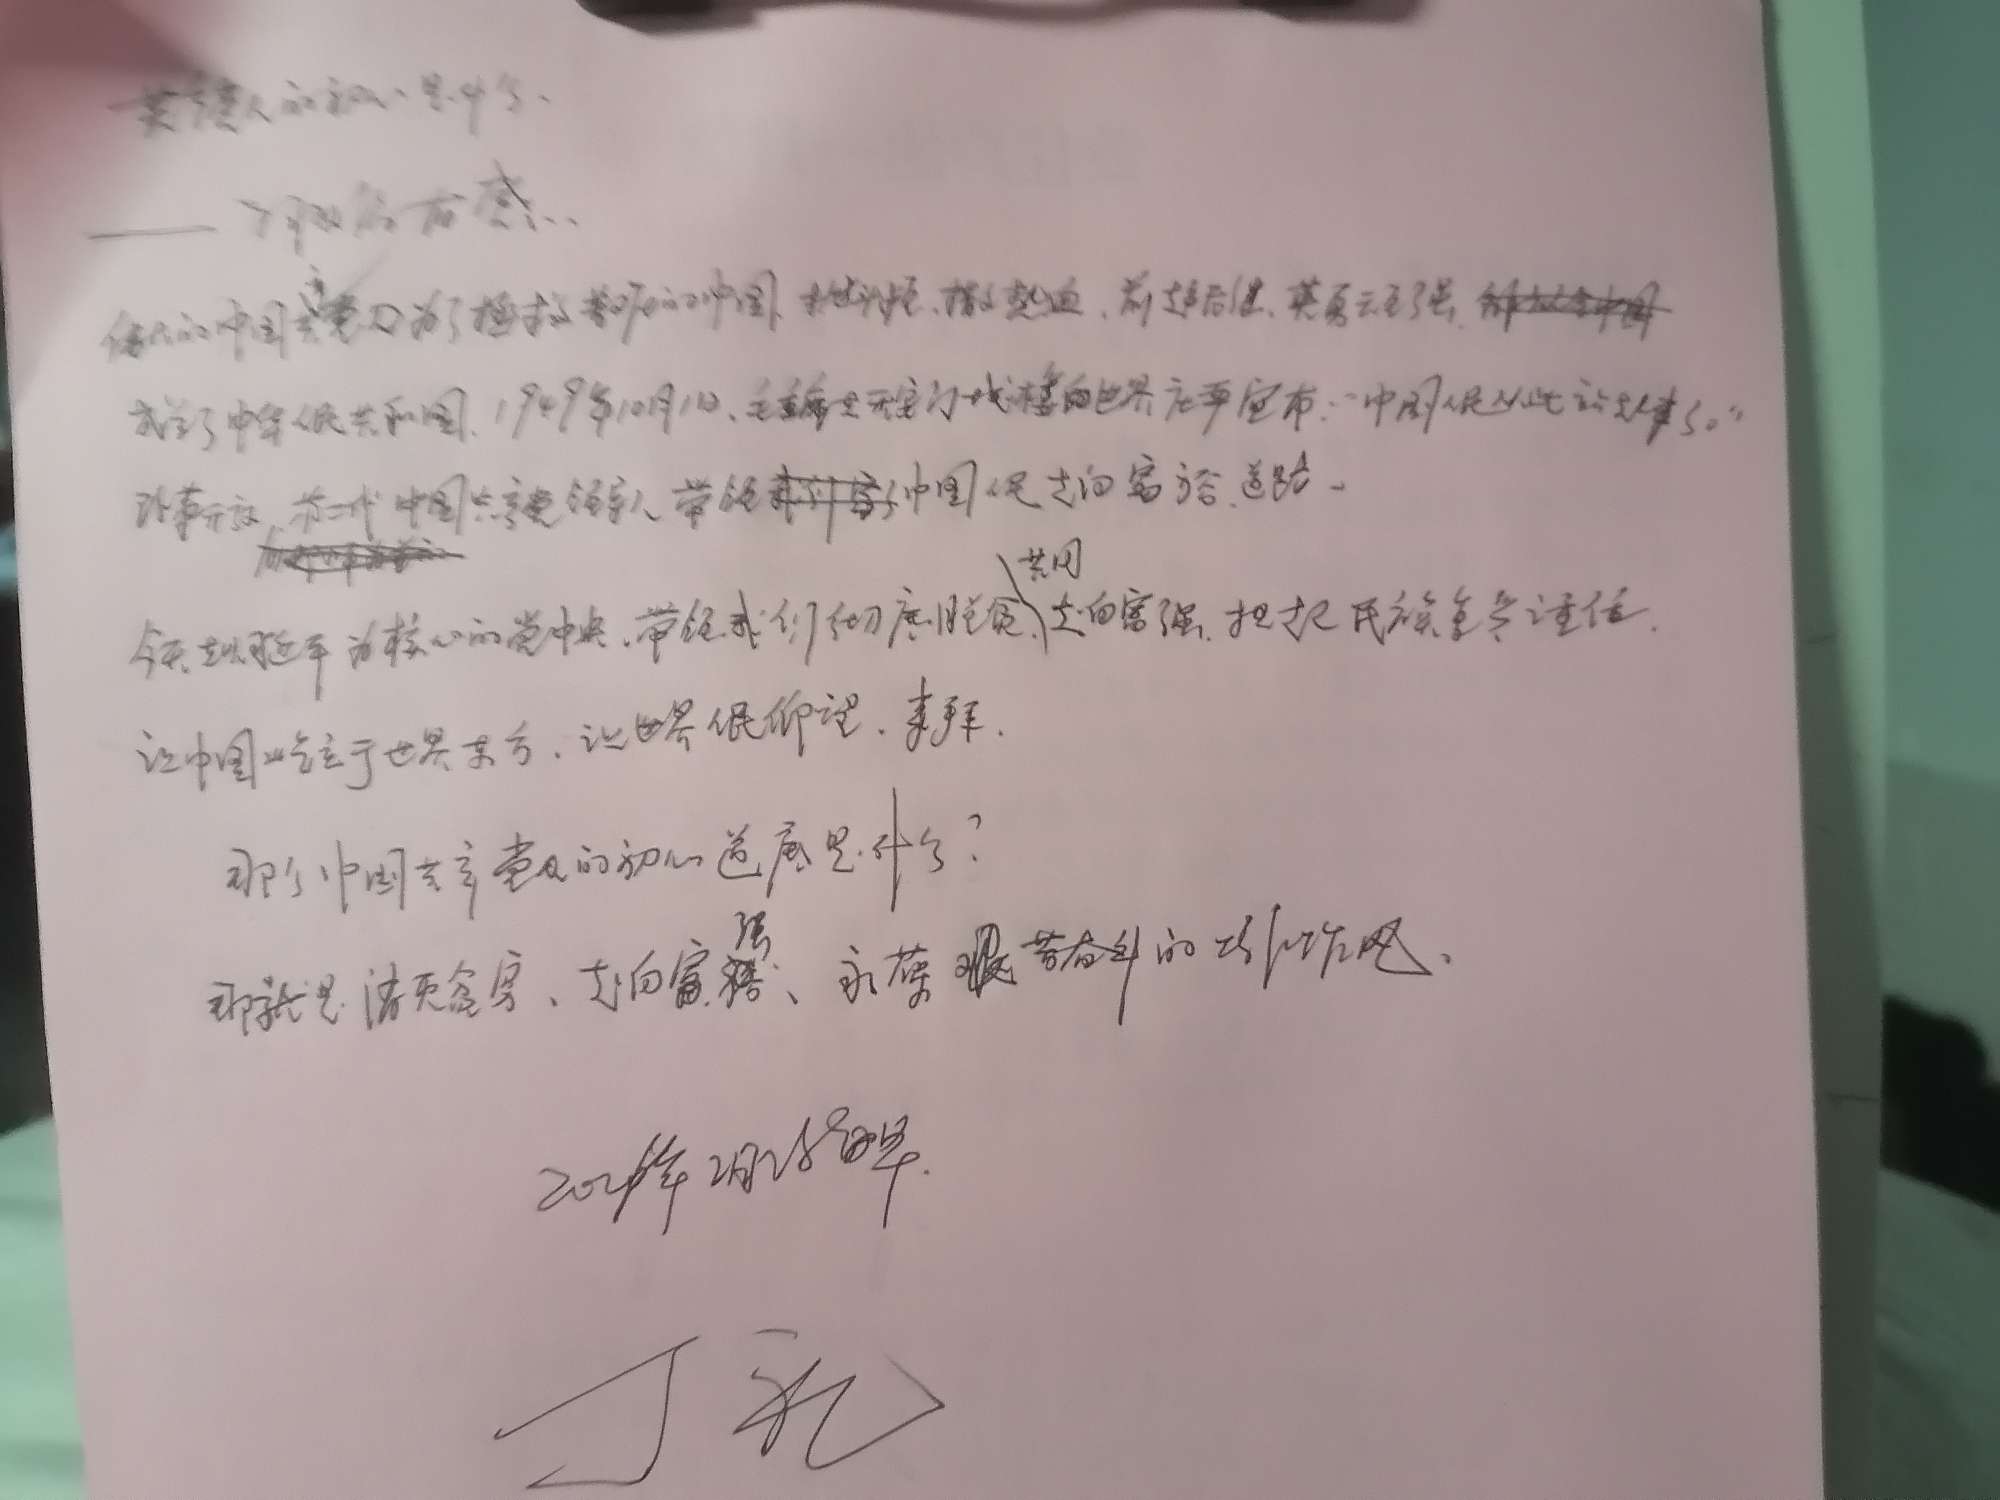 共产党人的初心是什么
的中国共产党人为了拯救苦难的中国、抛头颅、撒热血、前赴后继、英勇顽强、
成立了中华人民共和国、1949年10月1日、毛主席在天安门城楼向世界庄严宣布:"中国人民从此站起来了。"
改革开放,第二代中国共产党领导人带领中国人民走向富裕道路、
共同
今天以习近平为核心的党中央、带领我们彻底脱贫、走向富强、担起民族复兴重任、
让中国屹立于世界东方、让世界人民仰望、来拜、
那么中国共产党人的初心道底是什么?
强
那就是消灭贫穷、走向富、永葆艰苦奋斗的工作作风、
2021年2月28日早.